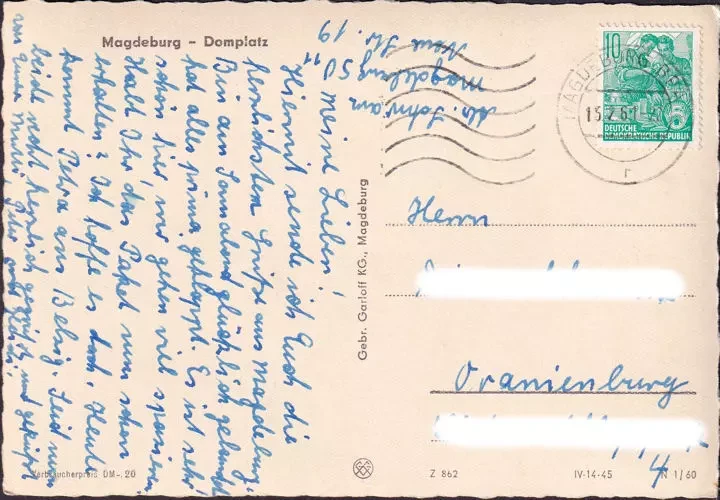 Magdeburg - Domplatz
Abs. Schramm
Magdeburg SO 11
Neue Str. 19
Meine Lieben!
Hiermit sende ich Euch die
herzlichsten Grüße aus Magdeburg.
Bin am Sonnabend glücklich gelandet
hat alles prima geklappt. Es ist sehr
schön hier, wir gehen viel spazieren
Habt Ihr das Paket nun schon
erhalten? Ich hoffe es doch. Heute
kommt Petra aus Belzig. Seid nun
beide recht herzlich gegrüßt und geküßt
von Eurer
10
MAGDEBURG
13.2.61
DEUTSCHE
DEMOKRATISCHE REPUBLIK
5
r
Gebr. Garloff KG., Magdeburg
Herrn
Oranienburg
4
Verbraucherpreis DM -, 20
Z 862
IV-14-45
N 1/60